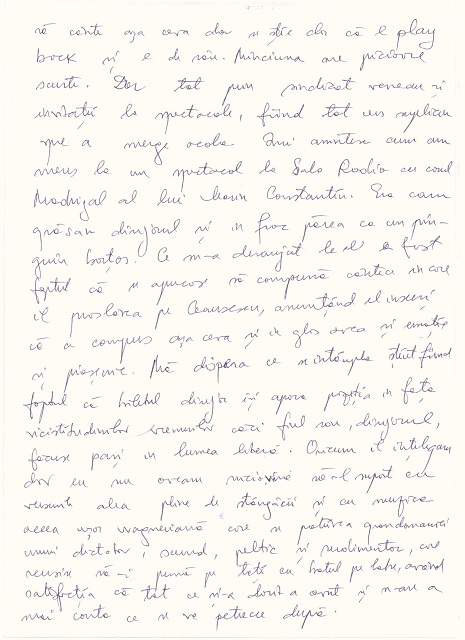 să cânte așa ceva dar se știe clar că e play
back și e de rău. Minciuna are picioare
scurte. Dar tot prin sindicat veneau și
invitații la spectacole, fiind tot un supliciu
spre a merge acolo. Îmi amintesc cum am
mers la un spectacol la Sala Radio cu corul
Madrigal al lui Marin Constantin. Era cam
grăsan dirijorul și în frac părea ca un pin-
guin burtos. Ce m-a deranjat la el a fost
faptul că se apucase să compună cântece în care
îl proslăvea pe Ceaușescu, anunțând el însuși
că a compus așa ceva și în glas avea și emoție
și pasiune. Mă dispera ce se întâmpla știut fiind
faptul că bietul dirijor își apăra poziția în fața
vicisitudinilor vremurilor căci fiul său, dirijorul,
făcuse pași în lumea liberă. Oricum îl înțelegeam
dar eu nu aveam nicio vină să-l suport cu
versurile alea pline de stângăcii și cu muzica
aceea ușor wagneriană care se potrivea grandomaniei
unui dictator, scund, peltic și rudimentar, care
reușise să-i pună pe toți cu botul pe labe, având
satisfacția că tot ce și-a dorit a avut și n-au a
mai conta ce se va petrece după.